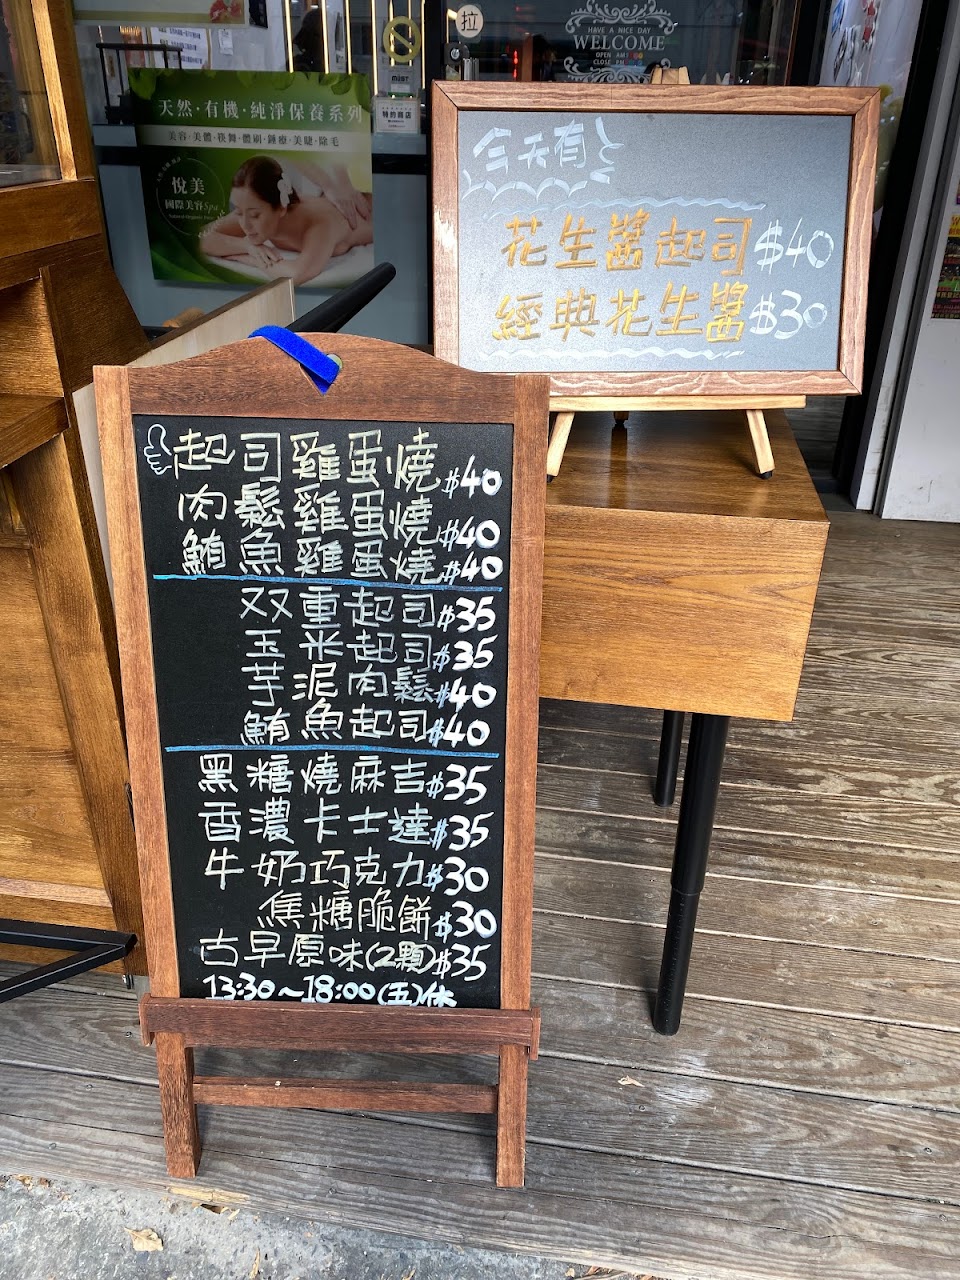 拉
HAVE A NICE DAY
WELCOME
天然·有機·純淨保養系列
美容·美體·筏舞·體刷·踵療·美睫·除毛
悅美
國際美容Spa
特約商店
今天有
花生醬起司$40
經典花生醬$30
起司雞蛋燒$40
肉鬆雞蛋燒$40
鮪魚雞蛋燒$40
双重起司$35
玉米起司$35
芋泥肉鬆$40
鮪魚起司$40
黑糖燒麻吉$35
香濃卡士達$35
牛奶巧克力$30
焦糖脆餅$30
古早原味(2顆)$35
13:30~18:00(五)休